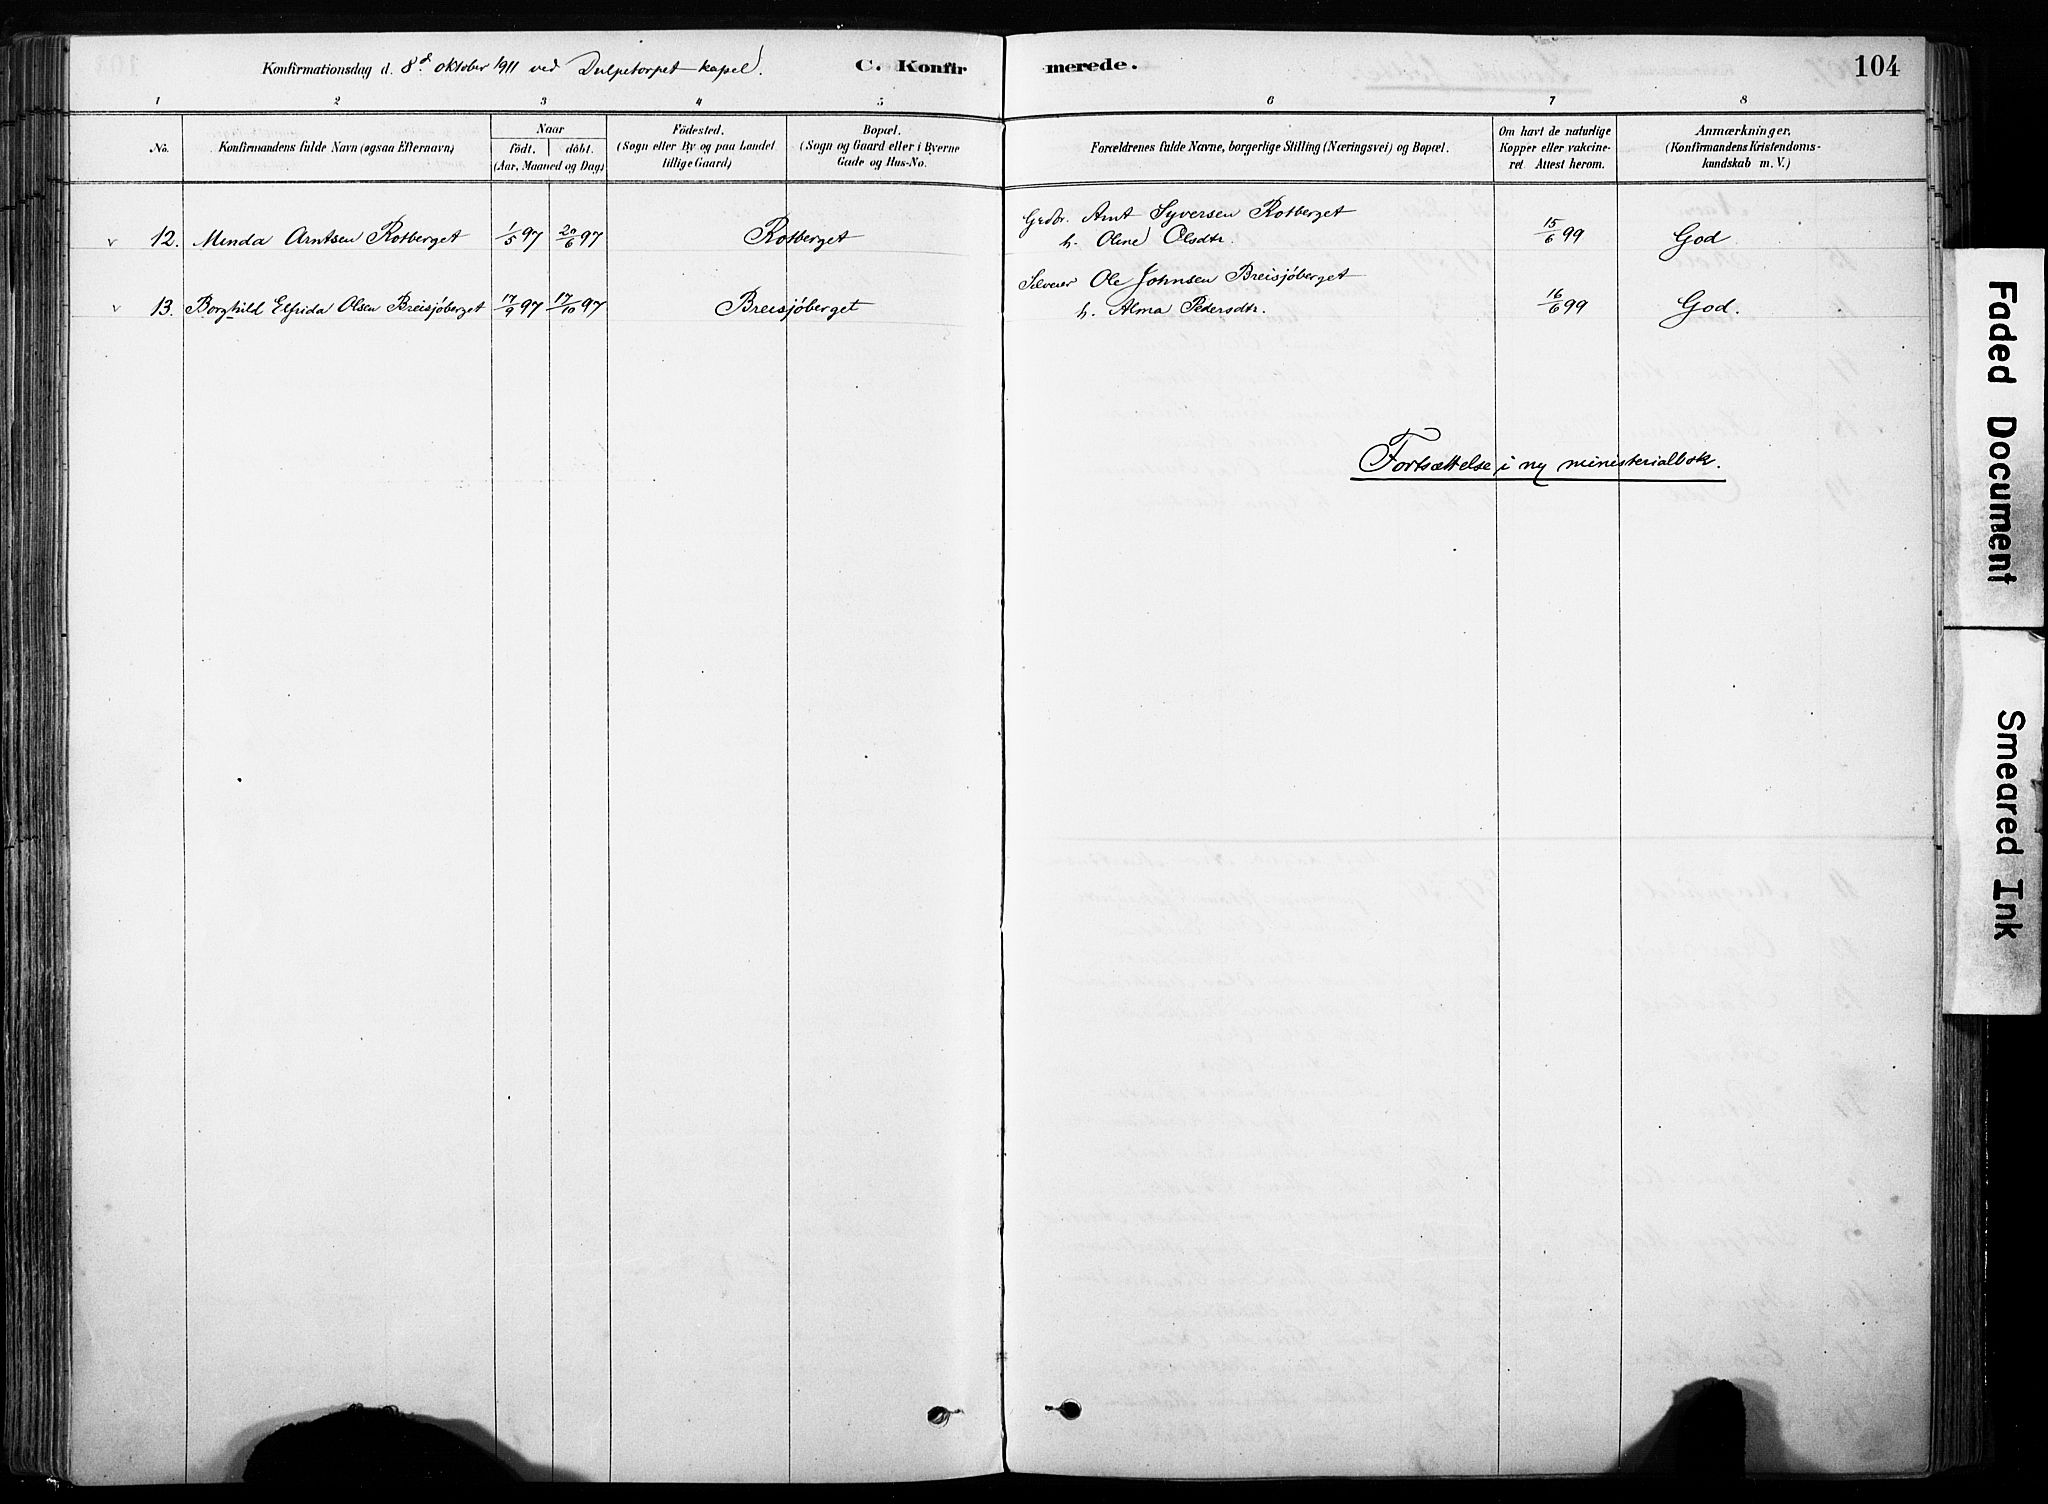 Konfirmationsdag d. 8de oktober 1911 ved Dulpetorpet kapel.
C. Konfirmerede.
104
1 2 3 4 5 6 7 8
No.
Konfirmandens fulde Navn (ogsaa Efternavn)
Naar
födt. döbt.
(Aar, Maaned og Dag)
Födested.
(Sogn eller By og paa Landet
tillige Gaard)
Bopæl.
(Sogn og Gaard eller i Byerne
Gade og Hus-No.
Forældrenes fulde Navne, borgerlige Stilling (Næringsvei) og Bopæl.
Om havt de naturlige
Kopper eller vakcine-
ret Attest herom.
Anmærkninger,
(Konfirmandens Kristendoms-
kundskab m. V.)
v 12. Minda Arntsen Rotberget 1/5 97 20/6 97 Rotberget Grdbr. Arnt Syversen Rotberget 15/6 99 God
h. Oline Olsdtr.
v 13. Borghild Elfrida Olsen Breisjöberget 17/9 97 17/10 97 Breisjöberget Selveier Ole Johnsen Breisjöberget 16/6 99 God.
h. Alma Pedersdtr.
Fortsættelse i ny ministerialbok.
Faded Document
Smeared Ink